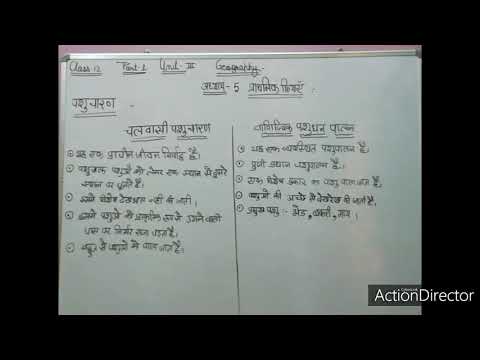 Class-12 Part-1 Unit-III Geography
अध्याय-5 प्राथमिक क्रियाएँ
पशुचारण
चलवासी पशुचारण
यह एक प्राचीन जीवन निर्वाह है।
पशुचारक पशुओं को लेकर एक स्थान से दूसरे
स्थान पर घूमते हैं।
इसमें विशेष देखभाल नहीं की जाती।
इसमें पशुओं को प्राकृतिक रूप से उगने वाली
घास पर निर्भर रहना पड़ता है।
बहुत से पशुओं को पाला जाता है।
वाणिज्यिक पशुधन पालन
यह एक व्यवस्थित पशुपालन है।
पूंजी प्रधान पशुपालन है।
एक विशेष प्रकार का पशु पाला जाता है।
पशुओं की अच्छे से देखरेख की जाती है।
प्रमुख पशु :- भेड़, बकरी, गाय।
ActionDirector